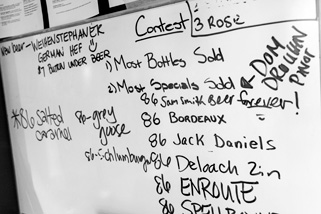 New Beer - WEIHENSTEPHANER
GERMAN HEF
86 BUTTON UNDER BEER
Contest
3 ROSÉ
1) Most Bottles Sold
2) Most Specials Sold
DOM
DROUHIN
PINOT
86 Sam Smith Beer forever!
86 BORDEAUX
*86 Salted
caramel
86-grey
goose
86 Jack Daniels
86-Schlumburger
86 Deloach Zin
86 ENROUTE
86